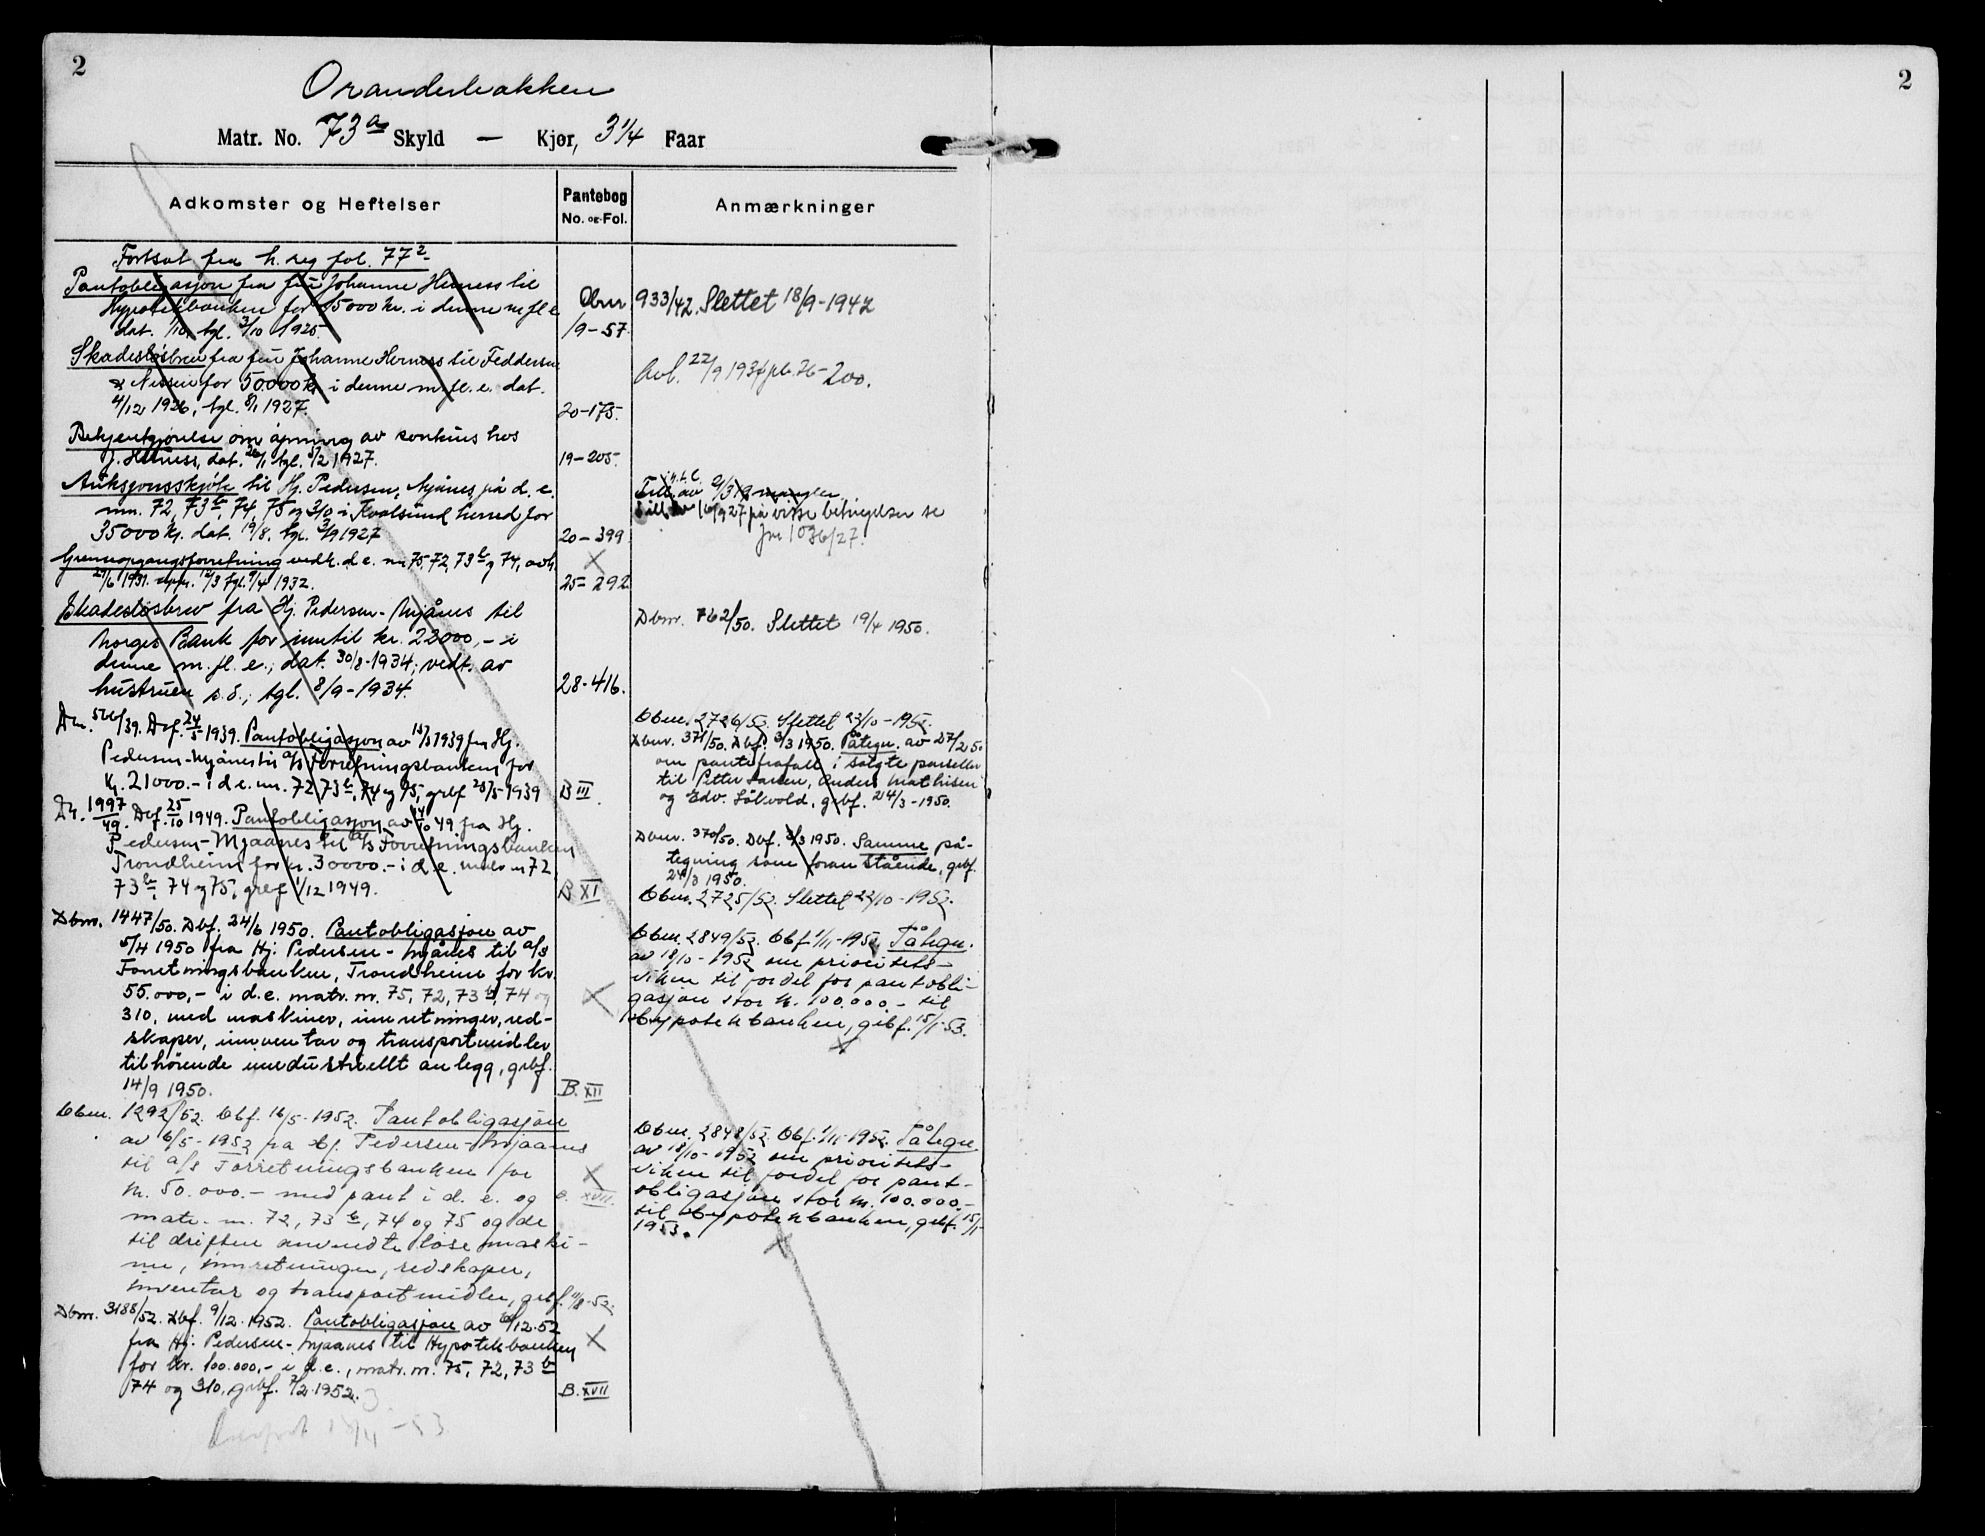 2
Oranderbakken
Matr. No. 73 a Skyld — Kjør, 3 1/4 Faar
Adkomster og Heftelser
Pantebog
No. og Fol.
Anmærkninger
Fortsat fra h. reg fol. 77 2
Pantobligasjon fra fru Johanne Herness til
Hypotekbanken for 15000 kr. i denne m fl e
dat. 1/10, tgl. 3/10 1925.
19-57.
Dbnr 933/42. Slettet 18/9-1942
Skadesløsbrev fra fru Johanne Herness til Feddersen
& Nissen for 50.000 kr i denne m. fl. e. dat.
4/12 1926, tgl. 8/1 1927.
20-175.
Avl. 22/9 1934 pb. 26-200.
Bekjentgjørelse om åpning av konkurs hos
J. Herness, dat. 26/1 tgl. 5/2 1927.
19-205.
Auksjonsskjøte til Hj. Pedersen, Mjånes på d. e.
mn. 72, 73 b, 74, 75 og 310 i Kvalsund herred for
35000 kr. dat. 19/8, tgl. 3/9 1927
20-399
Till. av 16/9 27 på visse betingelser se
Jnr 1036/27.
Grenseopgangsforretning vedk. d e. m 75, 72, 73 b og 74, avh.
29/6 1931. 12/3 tgl. 9/4 1932.
25-292
Skadesløsbrev fra Hj. Pedersen-Mjånes til
Norges Bank for inntil kr. 22000,- i
denne m. fl. e.; dat. 30/8-1934; vedt. av
hustruen s. d.; tgl. 8/9-1934.
28-416.
Dbnr. 762/50. Slettet 19/4 1950.
Dn. 526/39. Dbf. 24/5 1939. Pantobligasjon av 15/3 1939 fra Hj.
Pedersen-Mjånes til a/s Forretningsbanken for
kr. 21000.- i d.e. mn. 72, 73 b, 74 og 75, grbf 25/5-1939
B III.
Dbnr. 2726/52. Slettet 22/10-1952.
Dbnr. 371/50. Dbf. 3/3 1950. Påtegn. av 27/2 50
om pantefrafall i solgte parseller
til Petter Larsen, Anders Mathisen
og Edv. Sölvold, grbf. 24/3-1950.
Dn. 1997/49. Dbf. 25/10 1949. Pantobligasjon av 49 fra Hj.
Pedersen-Mjaanes til a/s Forretningsbanken
Trondheim for kr. 30000.- i d.e. matr n 72,
73 b, 74 og 75, grbf 1/12 1949.
B XI
Dbnr. 370/50. Dbf. 3/3 1950. Samme på-
tegning som foran stående, grbf.
24/3 1950.
Dbnr. 2725/52. Slettet 22/10-1952.
Dbnr. 1447/50. Dbf. 24/6 1950. Pantobligasjon av
5/4 1950 fra Hj. Pedersen-Mjånes til a/s
Forretningsbanken, Trondheim for kr.
55.000,- i d.e. matr. nr. 75, 72, 73 b, 74 og
310, med maskiner, innretninger, red-
skaper, inventar og transportmidler
tilhørende industriellt anlegg, grbf.
14/9 1950.
B. XII
Dbnr. 2849/52. Dbf. 1/11-1952. Påtegn.
av 18/10-1952 om prioritets-
viken til fordel for pantobli-
gasjon stor kr. 100.000,- til
Hypotekbanken, grbf. 15/1-53.
Dbnr. 1292/52. Dbf. 16/5-1952. Pantobligasjon
av 6/5-1952 fra Hj. Pedersen-Mjaanes
til a/s Forretningsbanken for
kr. 50.000.- med pant i d. e. og
matr. nr. 72, 73 b, 74 og 75 og de
til driften anvendte løse maski-
ner, innretninger, redskaper,
inventar og transportmidler, grbf. 11/8-52.
B. XVII.
Dbnr. 2848/52. Dbf. 1/11-1952. Påtegn.
av 18/10-1952 om prioritets-
viken til fordel for pant-
obligasjon stor kr. 100.000.-
til Hypotekbanken, grbf. 15/1-
1953.
Dbnr. 3188/52. Dbf. 9/12.1952. Pantobligasjon av 12.52
fra Hj. Pedersen-Mjaanes til Hypotekbanken
for kr. 100.000,- i d.e., matr. nr. 75, 72, 73 b
74 og 310, grbf. 7/2.1952.
B. XVII
2